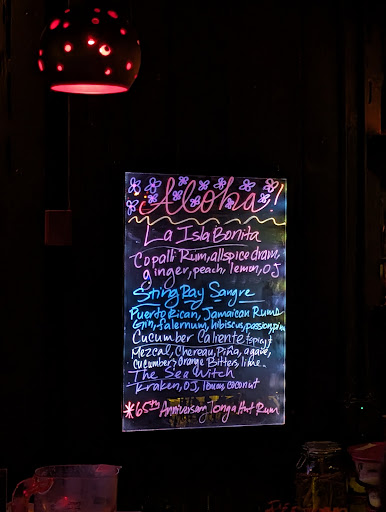 ¡Aloha!
La Isla Bonita
Copalli Rum, allspice dram
ginger, peach, lemon, OJ
Sting Ray Sangre
Puerto Rican, Jamaican Rums
Gin, falernum, hibiscus, passion, pine
Cucumber Caliente (spicy)
Mezcal, Chereau, Piña, agave,
cucumbers, orange Bitters, lime.
The Sea Witch
Kraken, OJ, lemon, coconut
*65th Anniversary Tonga Hut Rum